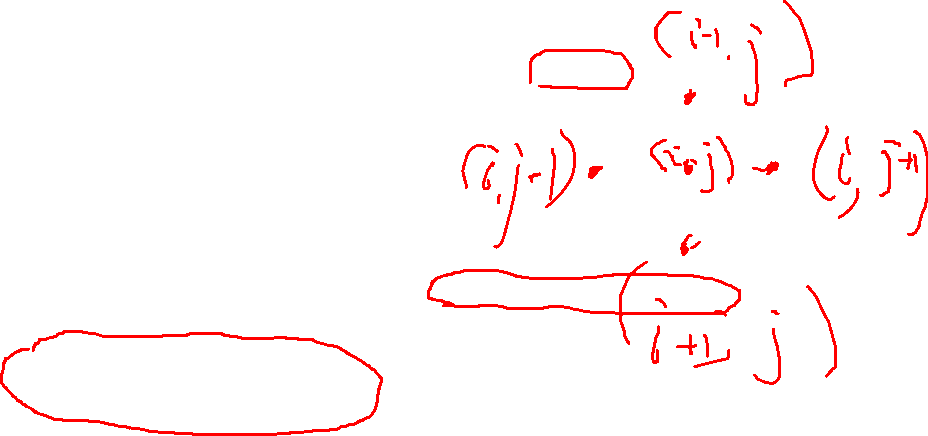 (i-1, j)
(i, j-1) . (i, j) . (i, j+1)
(i+1, j)